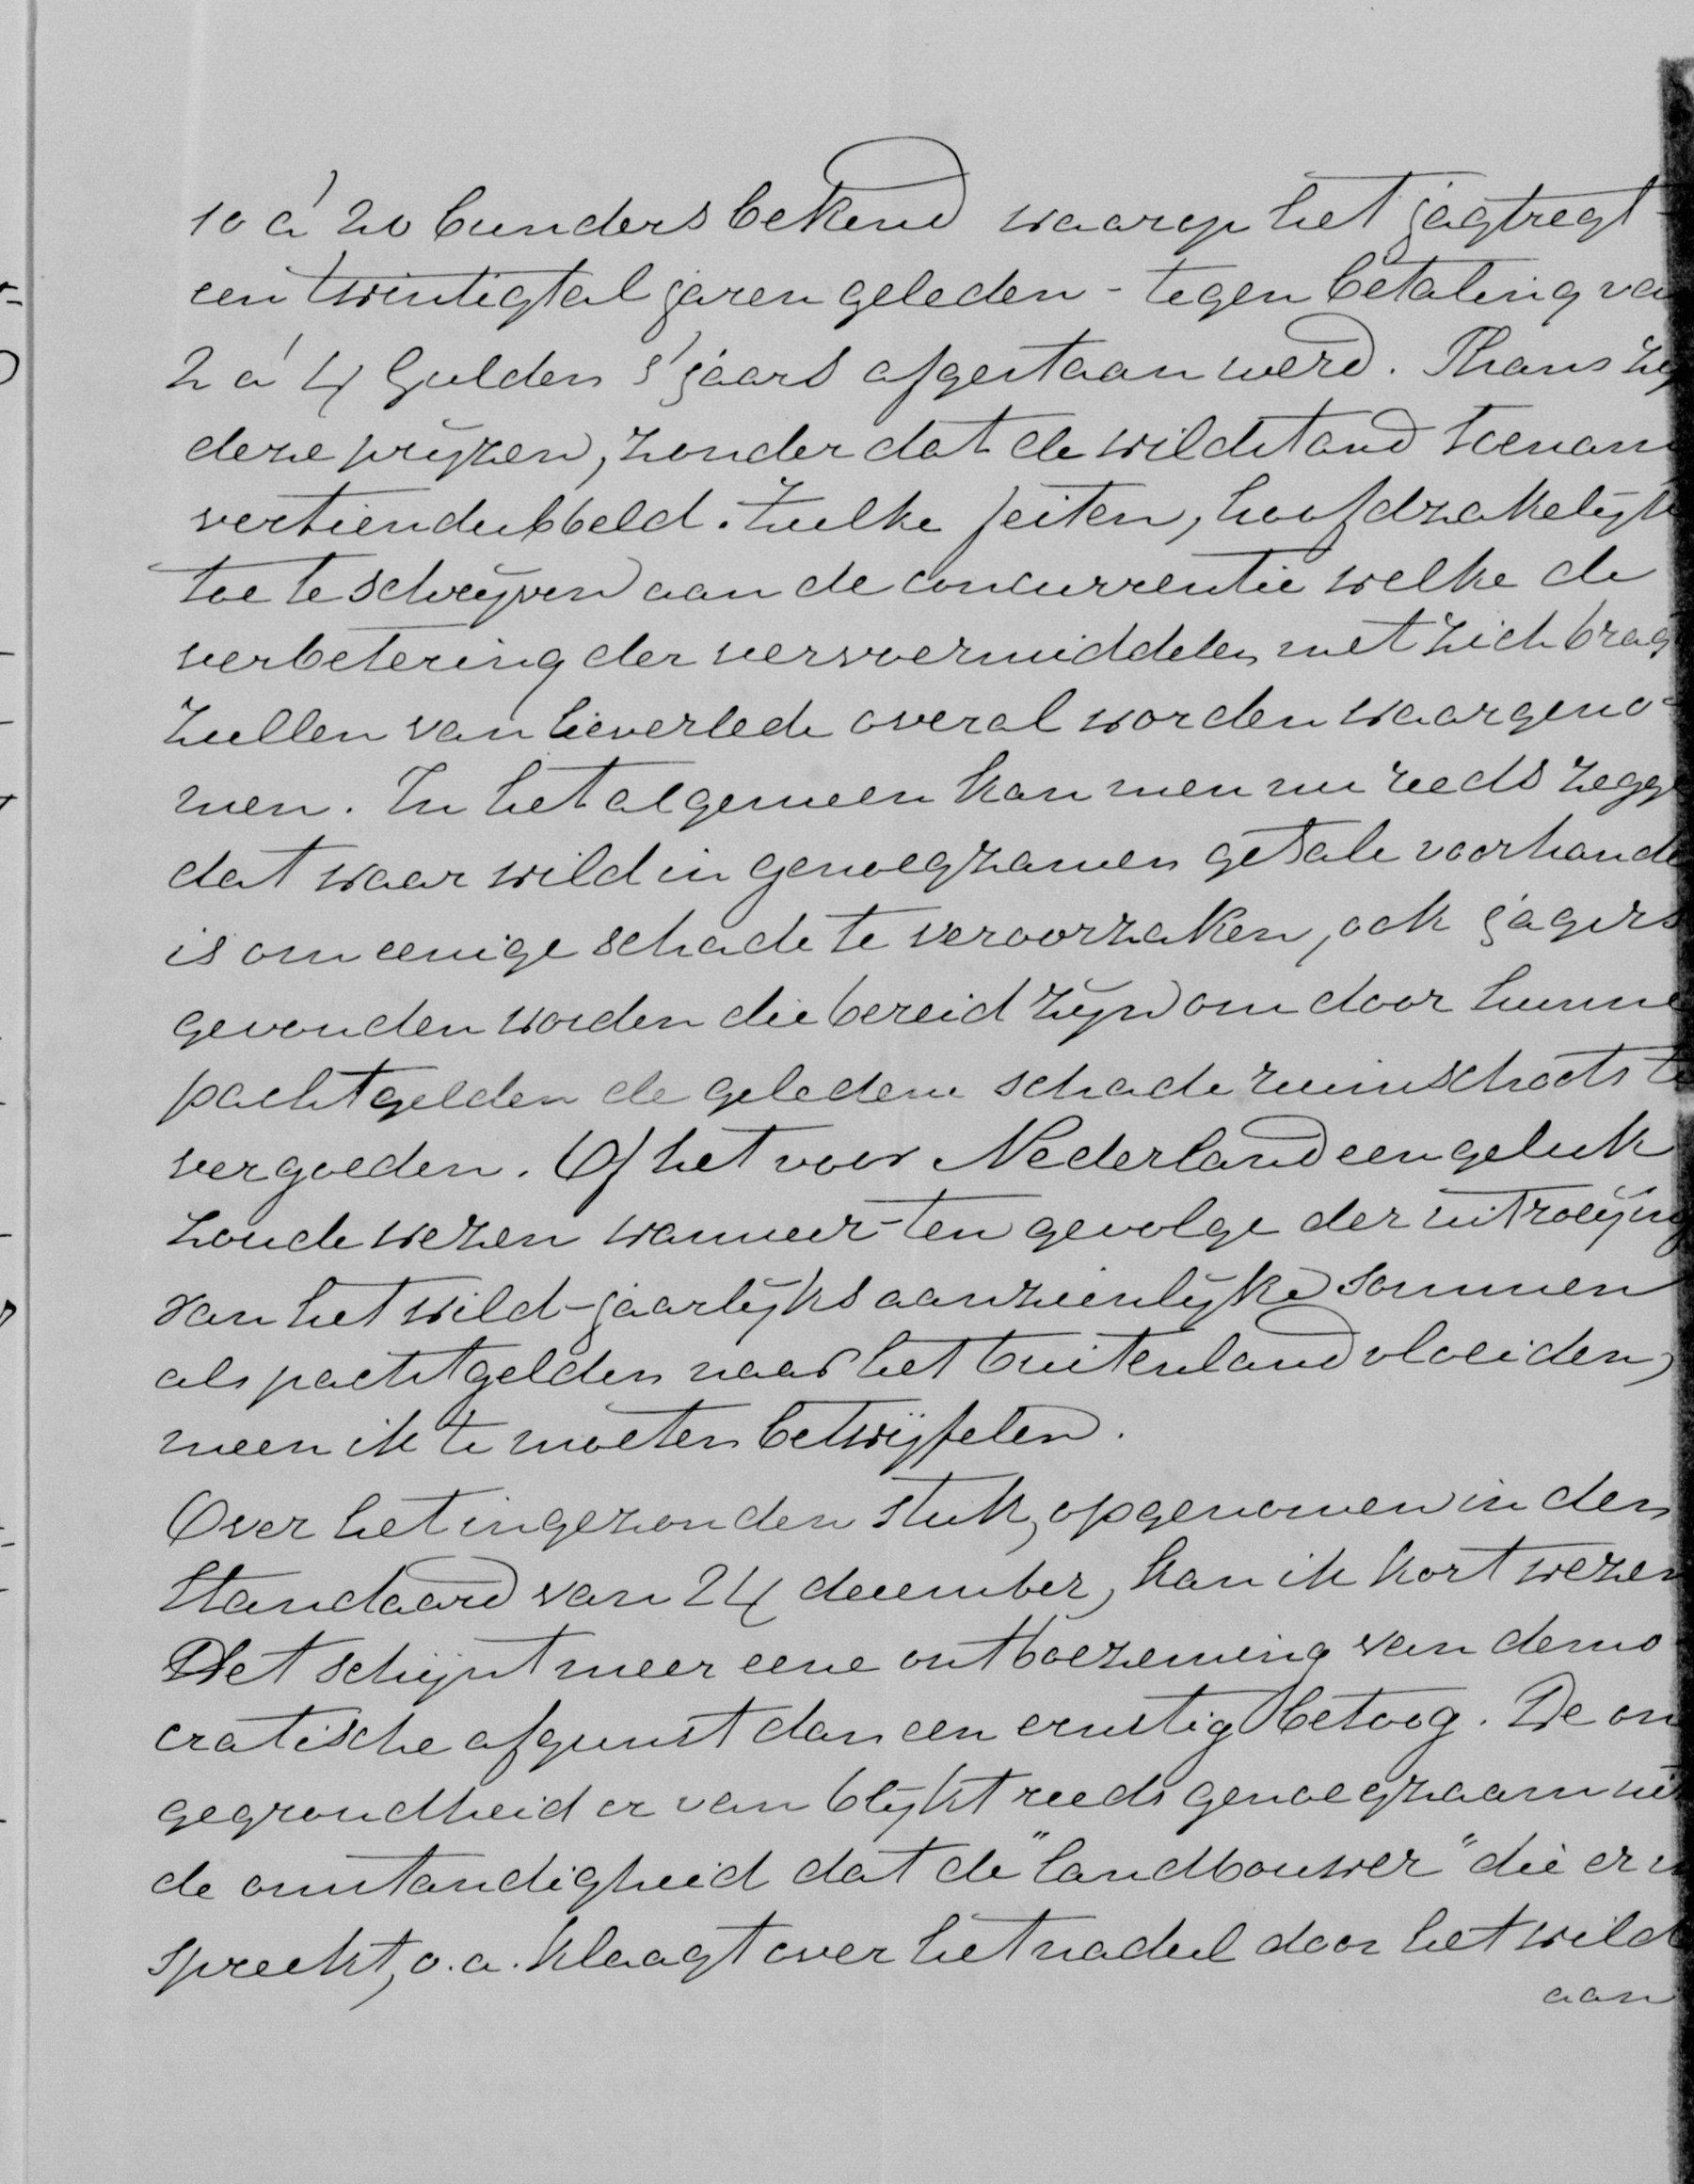 10 á 20 bunders bekend waarop het jagtregt -
een twintigtal jaren geleden - tegen betaling va
2 á 4 Gulden 's jaars afgestaan werd. Thans zij
deze prijzen, zonder dat de wildstand toenam
vertiendubbeld. Zulke feiten, hoofdzakelijk
toe te schrijven aan de concurrentie welke de
verbetering der vervoermiddelen met zich brag
zullen van lieverlede overal worden waargeno-
men. In het algemeen kan men nu reeds zegge
dat waar wild in genoegzamen getale voorhande
is om eenige schade te veroorzaken, ook jagers
gevonden worden die bereid zijn om door hunne
pachtgelden de geledene schade ruimschoots te
vergoeden. Of het voor Nederland een geluk
zoude wezen wanneer - ten gevolge der uitroeijing
van het wild - jaarlijks aanzienlijke sommen
als pachtgelden naar het buitenland vloeiden,
meen ik te moeten betwijfelen.
Over het ingezonden stuk, opgenomen in den
Standaard van 24 december, kan ik kort wezen
Het schijnt meer eene ontboezeming van demo
cratische afgunst dan een ernstig betoog. De on
gegrondheid er van blijkt reeds genoegzaam uit
de omstandigheid dat de "landbouwer" die er in
spreekt, o.a. klaagt over het nadeel door het wild
aan